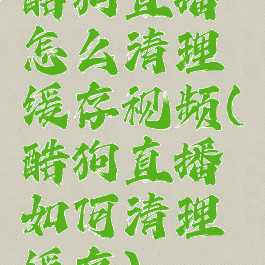 酷狗直播
怎么清理
缓存视频(
酷狗直播
如何清理
缓存)